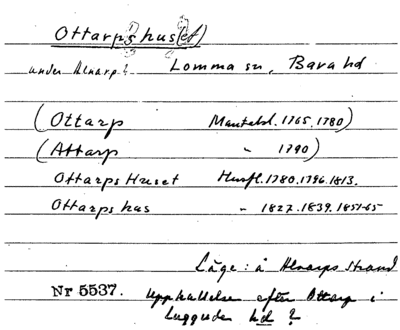 Ottarps hus(et)
under Alnarp 2. Lomma sn, Bara hd
(Ottarp Mantalsl. 1765, 1780)
(Attarp " 1790)
Ottarps Huset Husfl. 1780. 1796. 1813.
Ottarps hus " 1827. 1839. 1851-65
Läge: å Alnarps strand
Nr 5537. Uppkallelse efter Ottarp i
Luggude hd ?